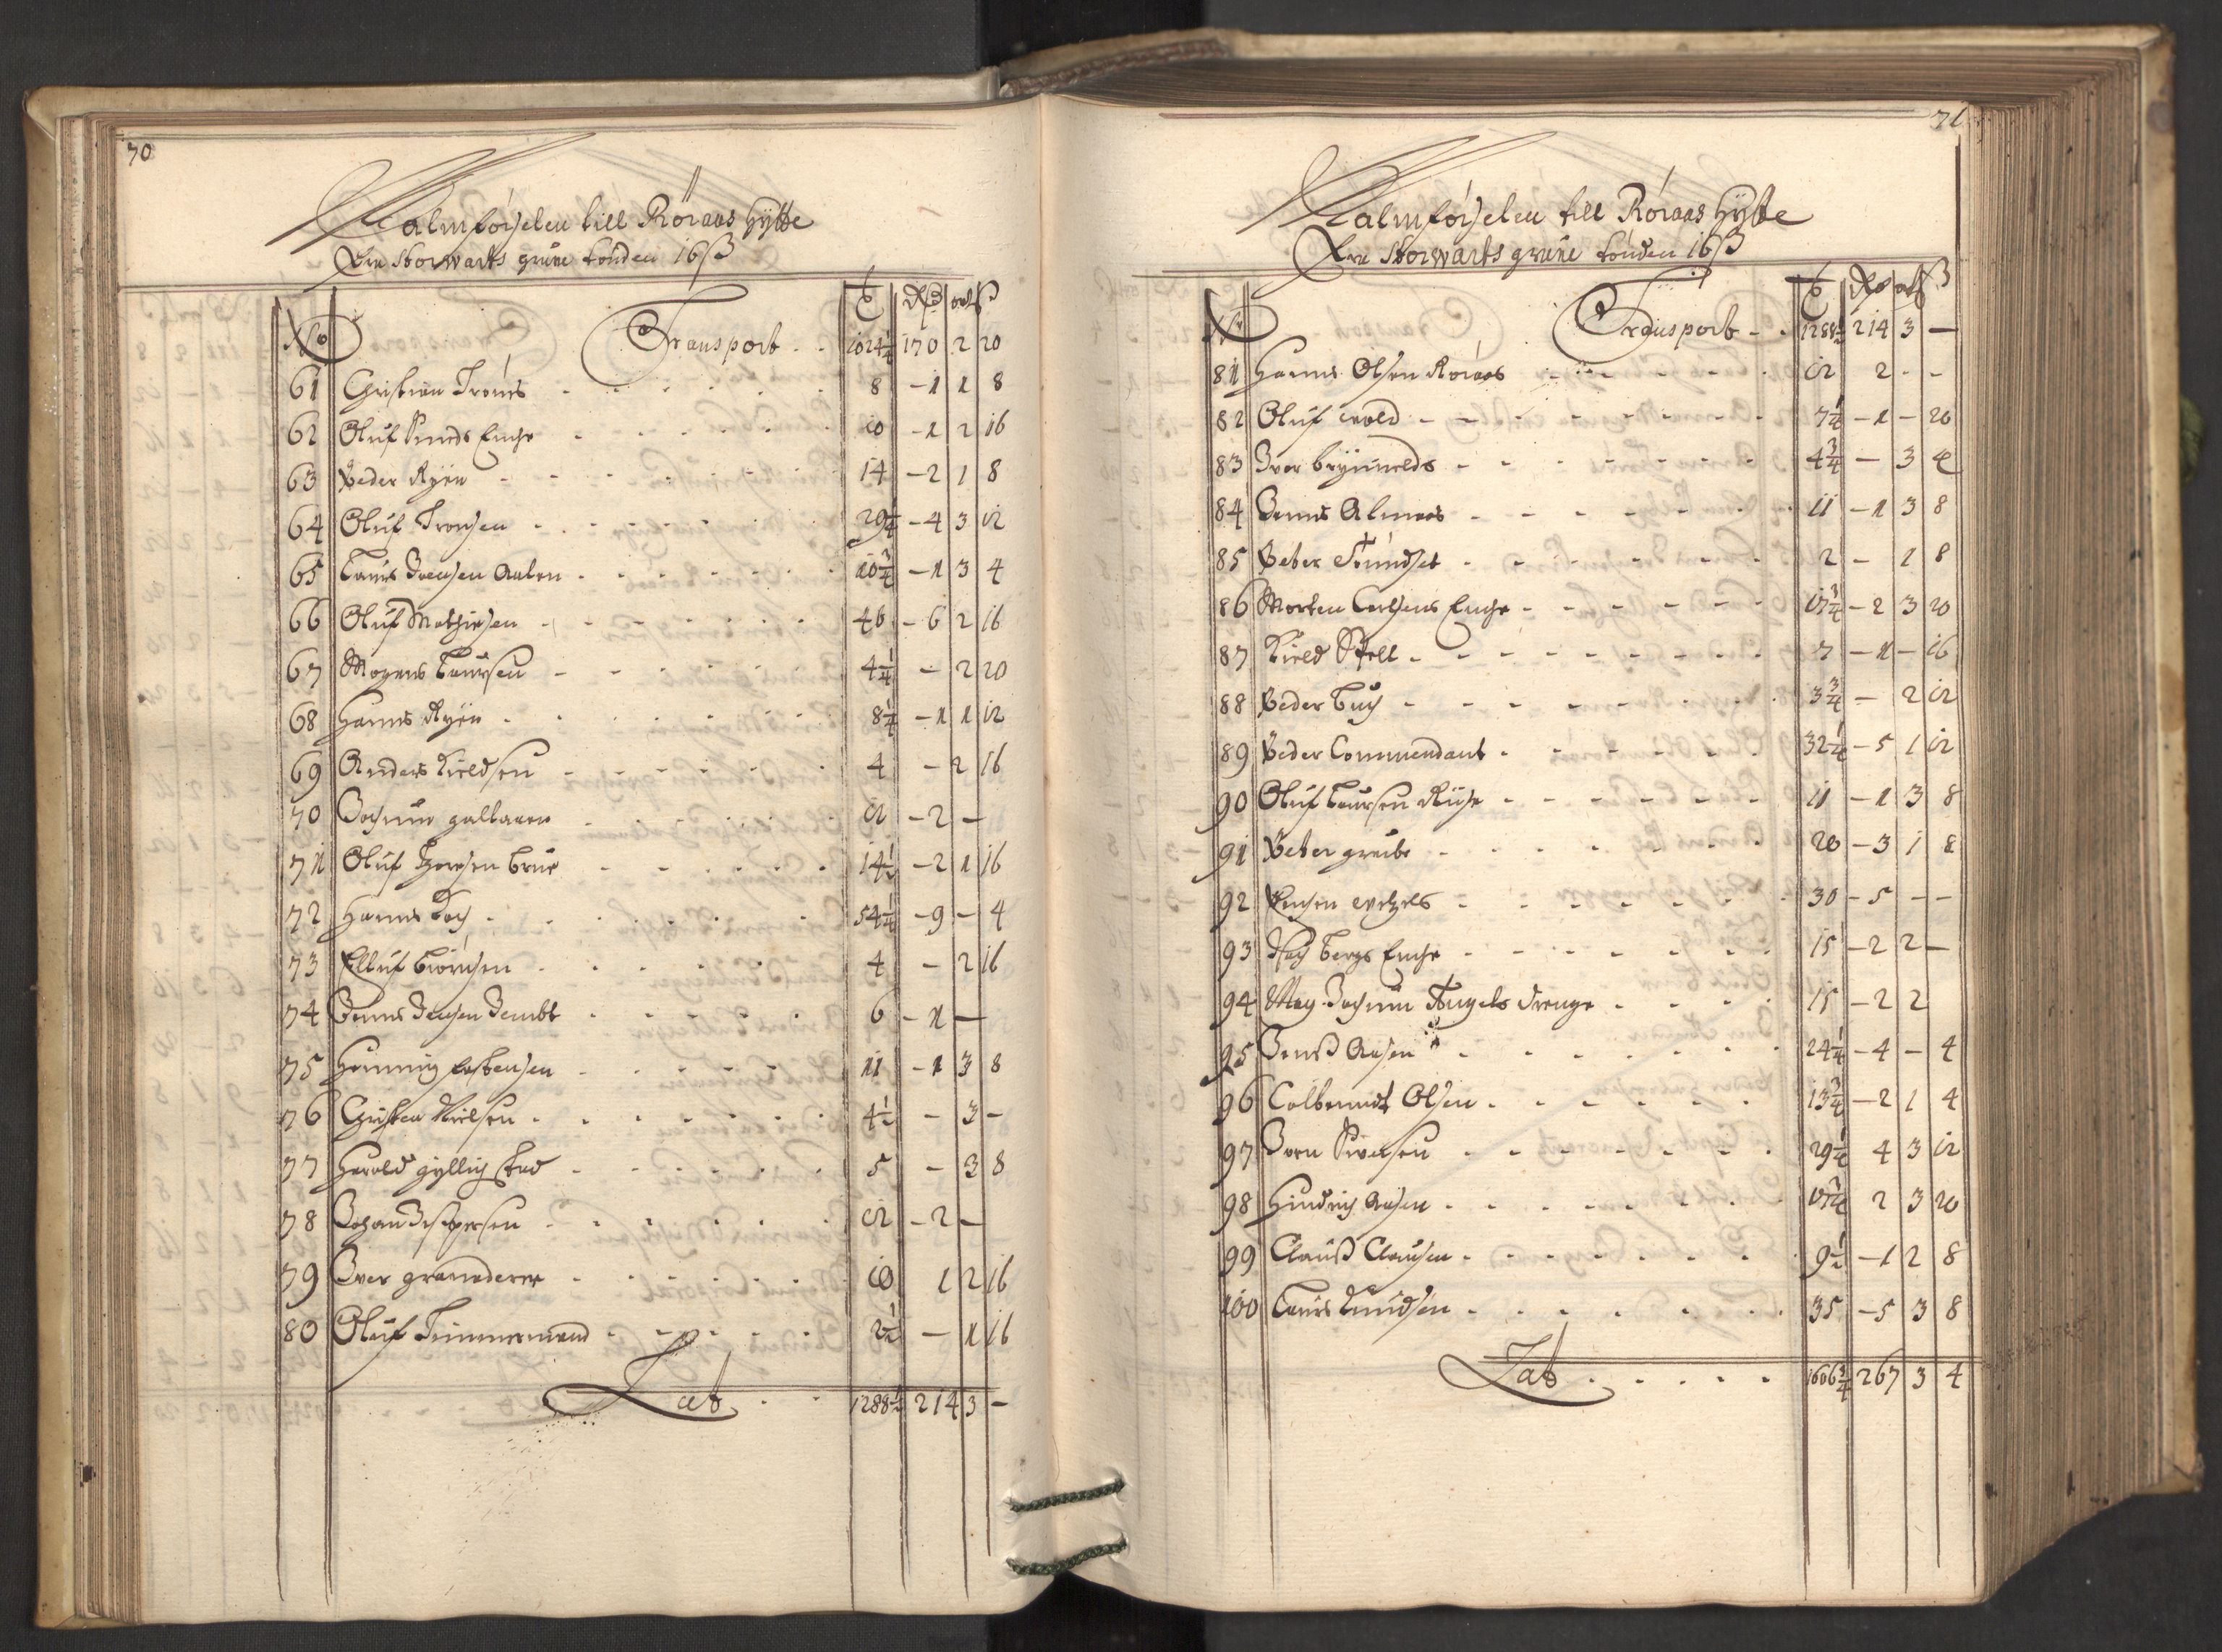 70
Malmførselen till Röraas Hÿtte
Fra Storwarts grube tönden 16 ß
No Transport - - 1024 1/4 170 2 20
61 Christian Trönes - - - 8 - 1 1 8
62 Oluf Sunds Enche - - - 10 - 1 2 16
63 Peder Rÿen - - - 14 - 2 1 8
64 Oluf Tronsen - - - 29 1/4 - 4 3 12
65 Laurs Joensen Aalen - - - 10 3/4 - 1 3 4
66 Oluf Mathiesen - - - 40 - 6 2 16
67 Mogens Laursen - - - 4 1/4 - 2 20
68 Hanns Rÿen - - - 8 1/4 - 1 1 12
69 Anders Kieldsen - - - 4 - 2 16
70 Jochum gallaaen - - - 12 - 2 -
71 Oluf Thoresen brue - - - 14 1/2 - 2 1 16
72 Hanns Koch - - - 54 1/4 - 9 - 4
73 Elluf Biörnsen - - - 4 - 2 16
74 Jenns Jensen Jembt - - - 6 - 1 -
75 Henning Estensen - - - 11 - 1 3 8
76 Christen Nielsen - - - 4 1/2 - 3 -
77 Harald gÿllich stad - - - 5 - 3 8
78 Johan Jespersen - - - 12 - 2 -
79 Iver granaderer - - - 10 1 2 16
80 Oluf Timmermand - - - 2 1/2 - 1 16
Lat - - 1288 1/2 214 3 -
71
Malmförselen till Röraas Hÿtte
Fra Storwarts grube tönden 16 ß
No Transport - - 1288 1/2 214 3 -
81 Hanns Olsen Röraas - - - 12 2 - -
82 Oluf wold - - - 7 1/4 - 1 - 20
83 Iver brÿnnilds - - - 4 3/4 - 3 4
84 Jenns Almaas - - - 11 - 1 3 8
85 Peter Tündset - - - 2 - 1 8
86 Morten Carlsens Enche - - - 17 3/4 - 2 3 20
87 Kield Stall - - - 7 - 1 - 16
88 Peder Buch - - - 3 3/4 - 2 12
89 Peder Commendant - - - 32 1/4 - 5 1 12
90 Oluf Laursen Riise - - - 11 - 1 3 8
91 Peter greibe - - - 20 - 3 1 8
92 Enchen wessels - - - 30 - 5 - -
93 Hach bergs Enche - - - 15 - 2 2 -
94 Mag Jochum Angels drenge - - - 15 - 2 2
95 Jenß Aasen - - - 24 1/4 - 4 - 4
96 Colbennidt Olsen - - - 13 3/4 - 2 1 4
97 Joen Siversen - - - 29 1/4 4 3 12
98 Hindrich Aasen - - - 17 3/4 2 3 20
99 Clauß Clausen - - - 9 1/2 - 1 2 8
100 Laurs Knudsen - - - 35 - 5 3 8
Lat - - - 1606 3/4 267 3 4